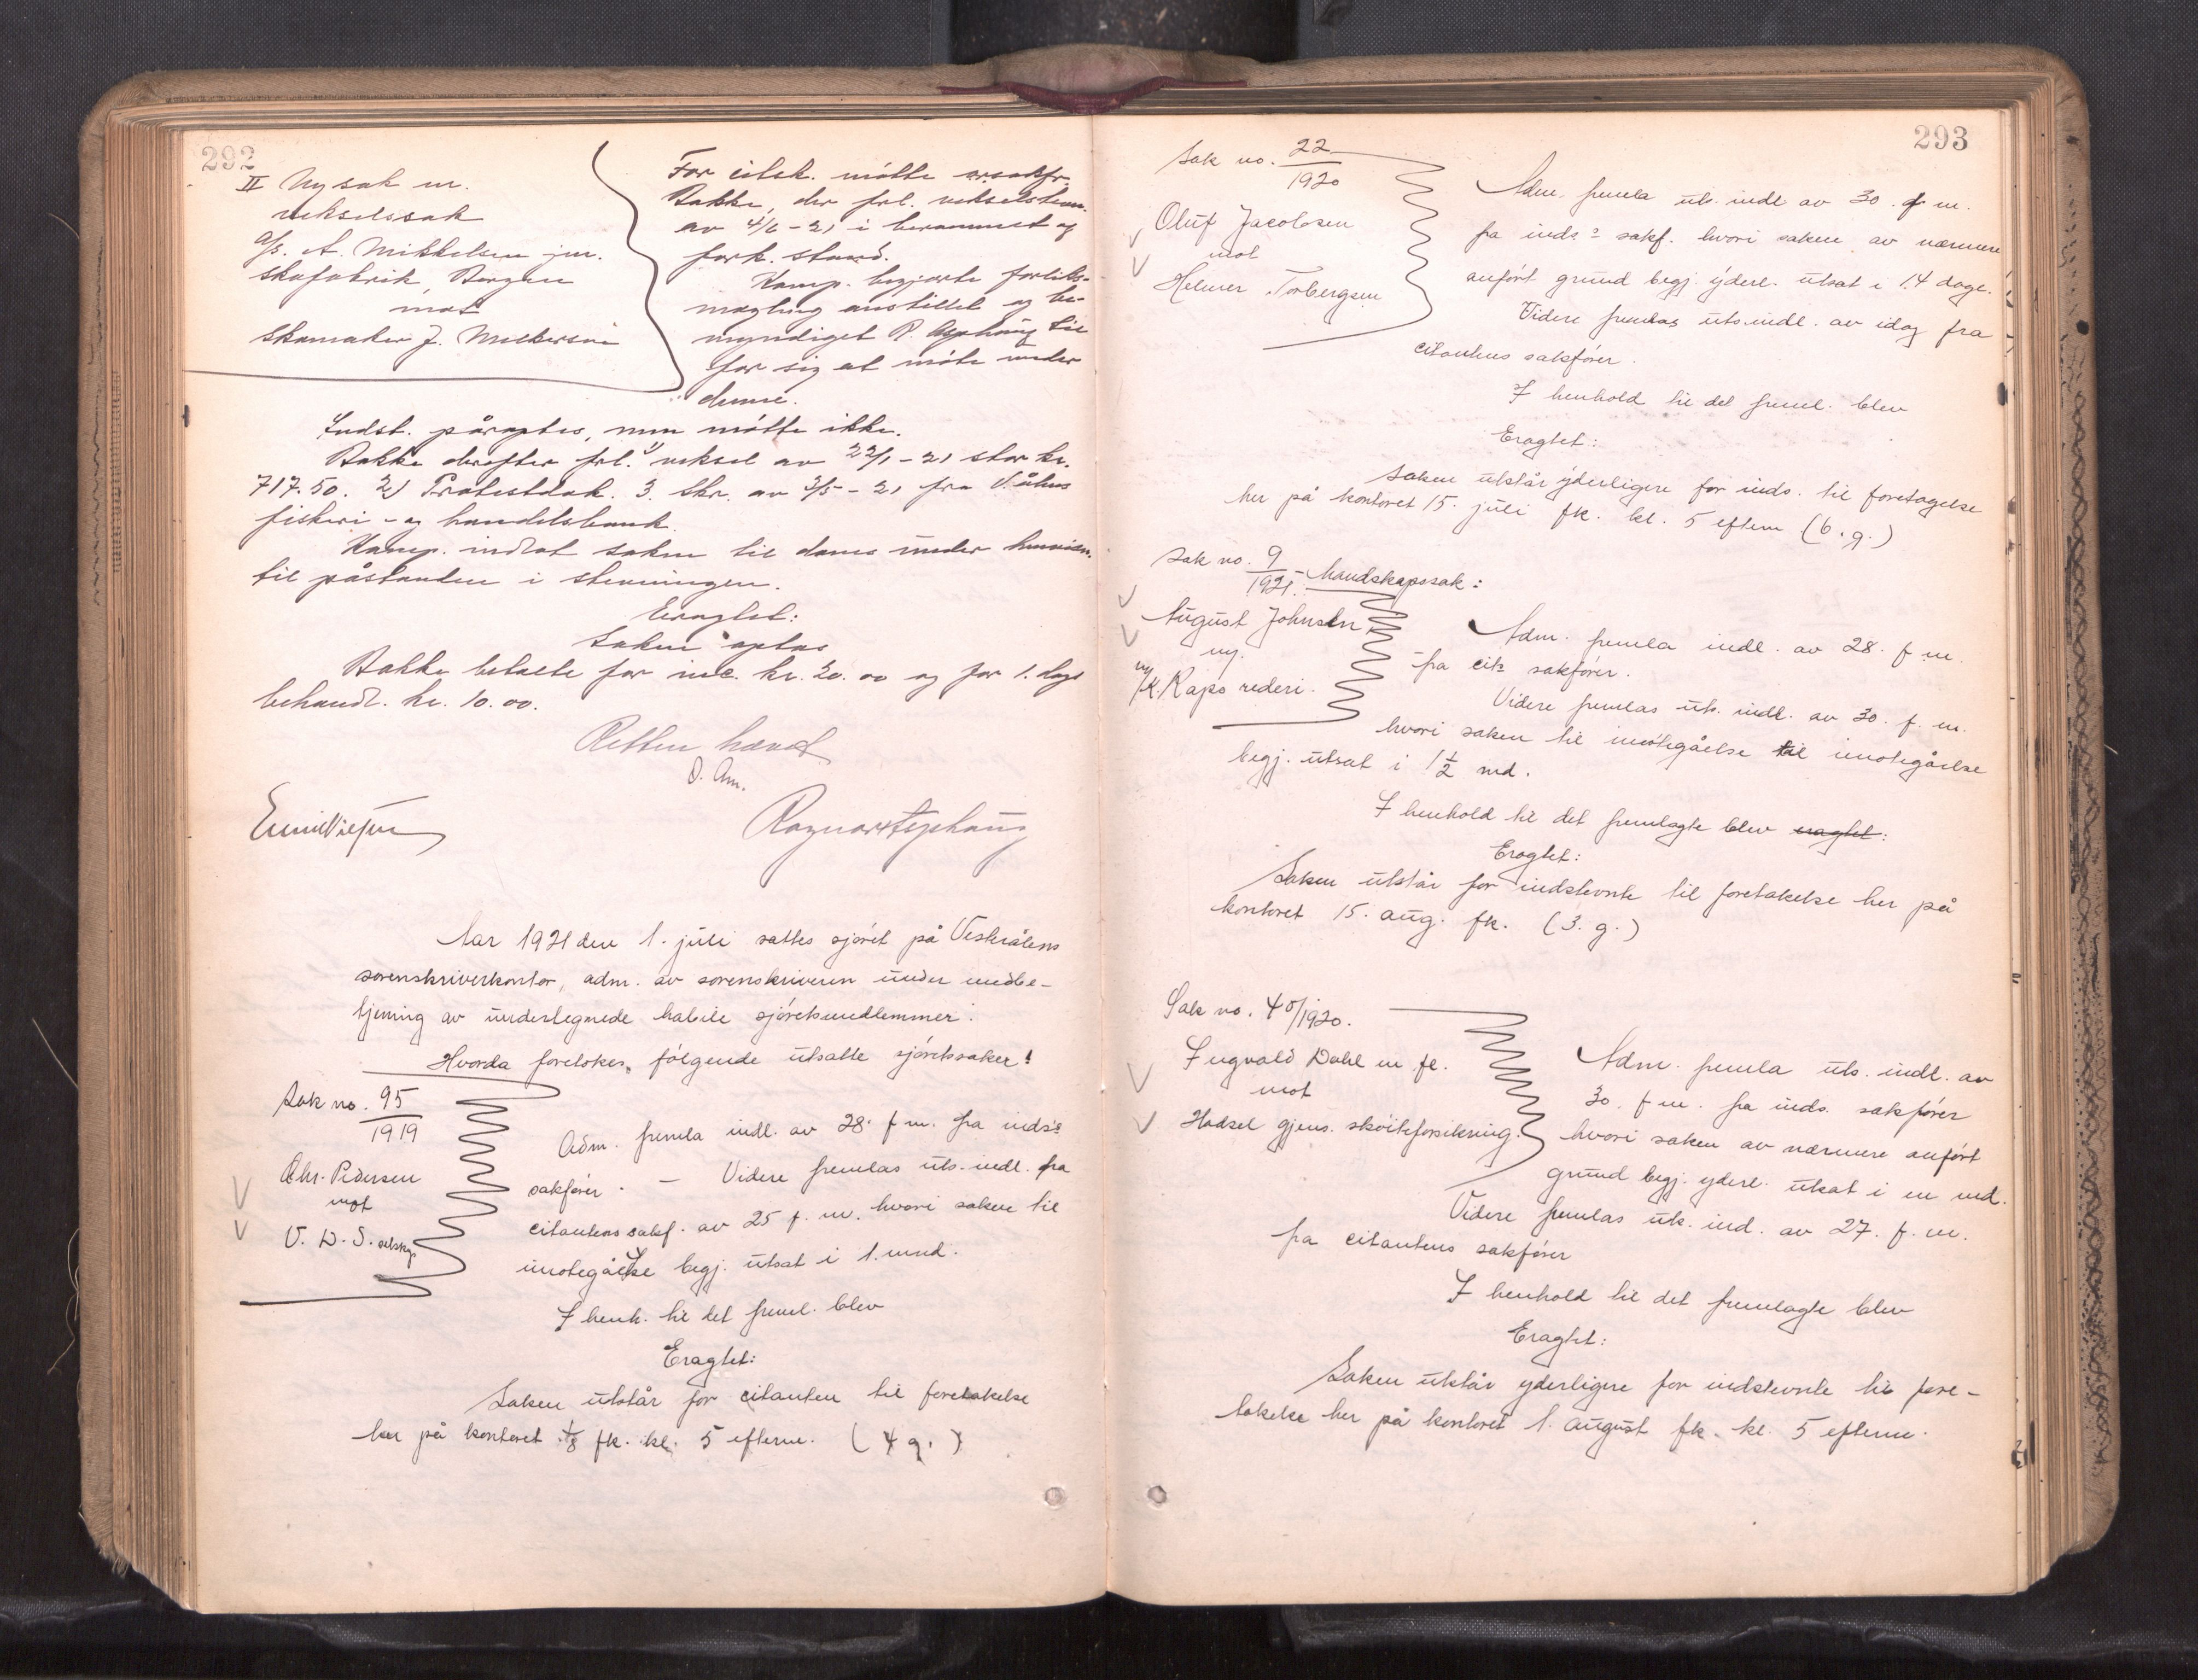 292
II Ny sak nr.
vekselssak
A/S. A. Mikkelsen jun.
skofabrik, Bergen
mot
skomaker J. Mikkersen
For citsk. møtte o.r.sakfr.
Bakke, der frl. vekselstevn.
av 4/6 - 21 i berammet og
fork. stand.
Komp. begjærte forliks-
mægling anstillet og be-
myndiget R. Asphaug til
for sig at møte under
denne.
Indst. påroptes, men møtte ikke.
Bakke derefter frl. 1) veksel av 22/1 - 21 stor kr.
717.50. 2) Protestdok. 3. Skr. av 3/5 - 21 fra V.ålens
fiskeri - og handelsbank.
Komp. indlot saken til doms under henvisn.
til påstanden i stevningen.
Eragtet:
Saken optas
Bakke betalte for inc. kr. 20.00 og for 1. dags
behandl. kr. 10.00.
Retten hævet
O. Am.
Emil Nielsen
Ragnar Asphaug
Aar 1921 den 1. juli sattes sjøret på Vesterålens
sorenskriverkontor, adm. av sorenskriveren under medbe-
tjening av undertegnede habile sjøretsmedlemmer.
Hvorda foretokes følgende utsatte sjøretssaker!
Sak no. 95/1919
Chr. Pedersen
mot
V. D. S. selskap
Adm. fremla indl. av 28. f m. fra inds's
sakfører. — Videre fremlas uts. indl. fra
citantens sakf. av 25 f. m. hvori saken til
imotegåelse begj. utsat i 1. mnd.
I henh. til det freml. blev
Eragtet:
Saken utstår for citanten til foretakelse
her på kontoret 1/8 fk. kl. 5 efterm. (4 g.)
293
Sak no. 22/1920
Oluf Jacobsen
mot
Helmer Torbergsen
Adm. fremla uts. indl av 30. f m.
fra inds's sakf. hvori saken av nærmere
anført grund begj. yderl. utsat i 14 dage.
Videre fremlas uts. indl. av idag fra
citantens sakfører.
I henhold til det freml. blev
Eragtet:
Saken utstår yderligere for inds. til foretagelse
her på kontoret 15. juli fk. kl. 5 efterm (6. g.)
Sak no. 9/1921 - mandskapssak:
August Johnsen
mot
Raps rederi.
Adm. fremla indl. av 28. f m.
fra cit's sakfører.
Videre fremlas uts. indl. av 30. f. m.
hvori saken til imøtegåelse til imotegåelse
begj. utsat i 1 1/2 md.
I henhold til det fremlagte blev eragtet:
Eragtet:
Saken utstår for indstevnte til foretakelse her på
kontoret 15. aug. fk. (3. g.)
Sak no. 40/1920.
Ingvald Dahl m fl.
mot
Hadsel gjens. skøiteforsikring.
Adm. fremla uts. indl. av
30. f m. fra inds. sakfører
hvori saken av nærmere anført
grund begj. yderl. utsat i en md.
Videre fremlas uts. ind. av 27. f. m.
fra citantens sakfører
I henhold til det fremlagte blev
Eragtet:
Saken utstår yderligere for indstevnte til fore-
takelse her på kontoret 1. august fk. kl. 5 efterm.